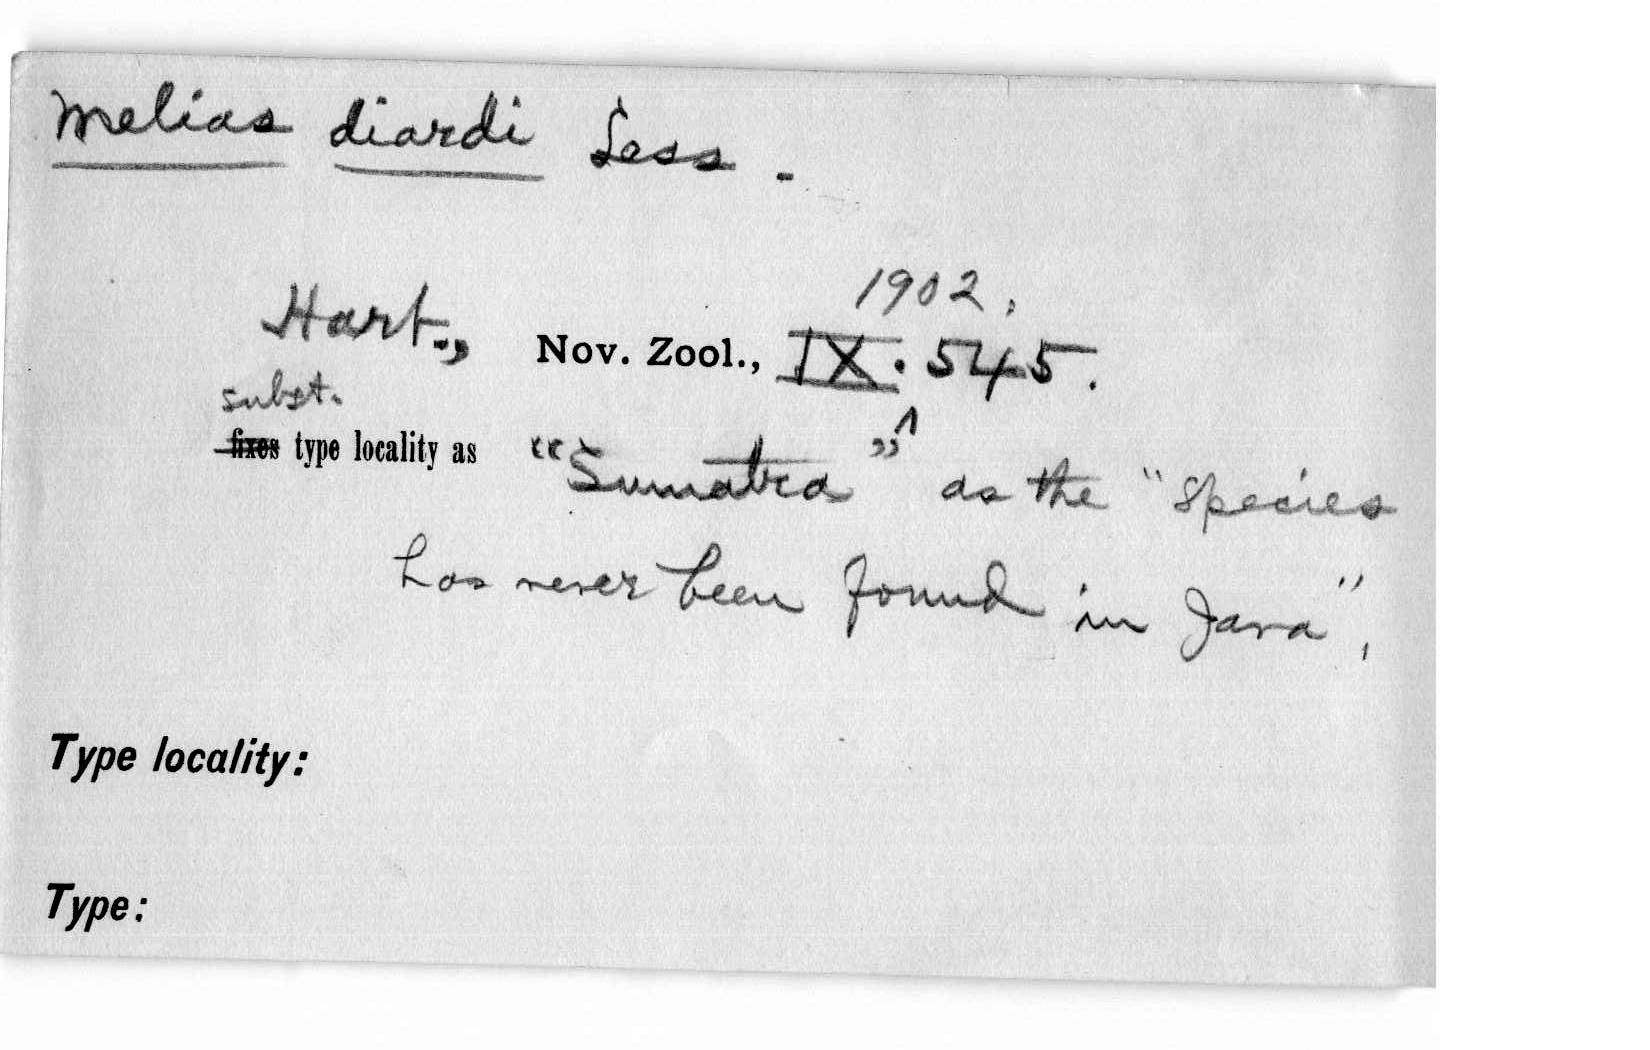 Melias diardi Less.
1902.
Hart., Nov. Zool., IX. 545.
subst.
fixes type locality as "Sumatra" ^ as the "species
has never been found in Java",
Type locality:
Type: